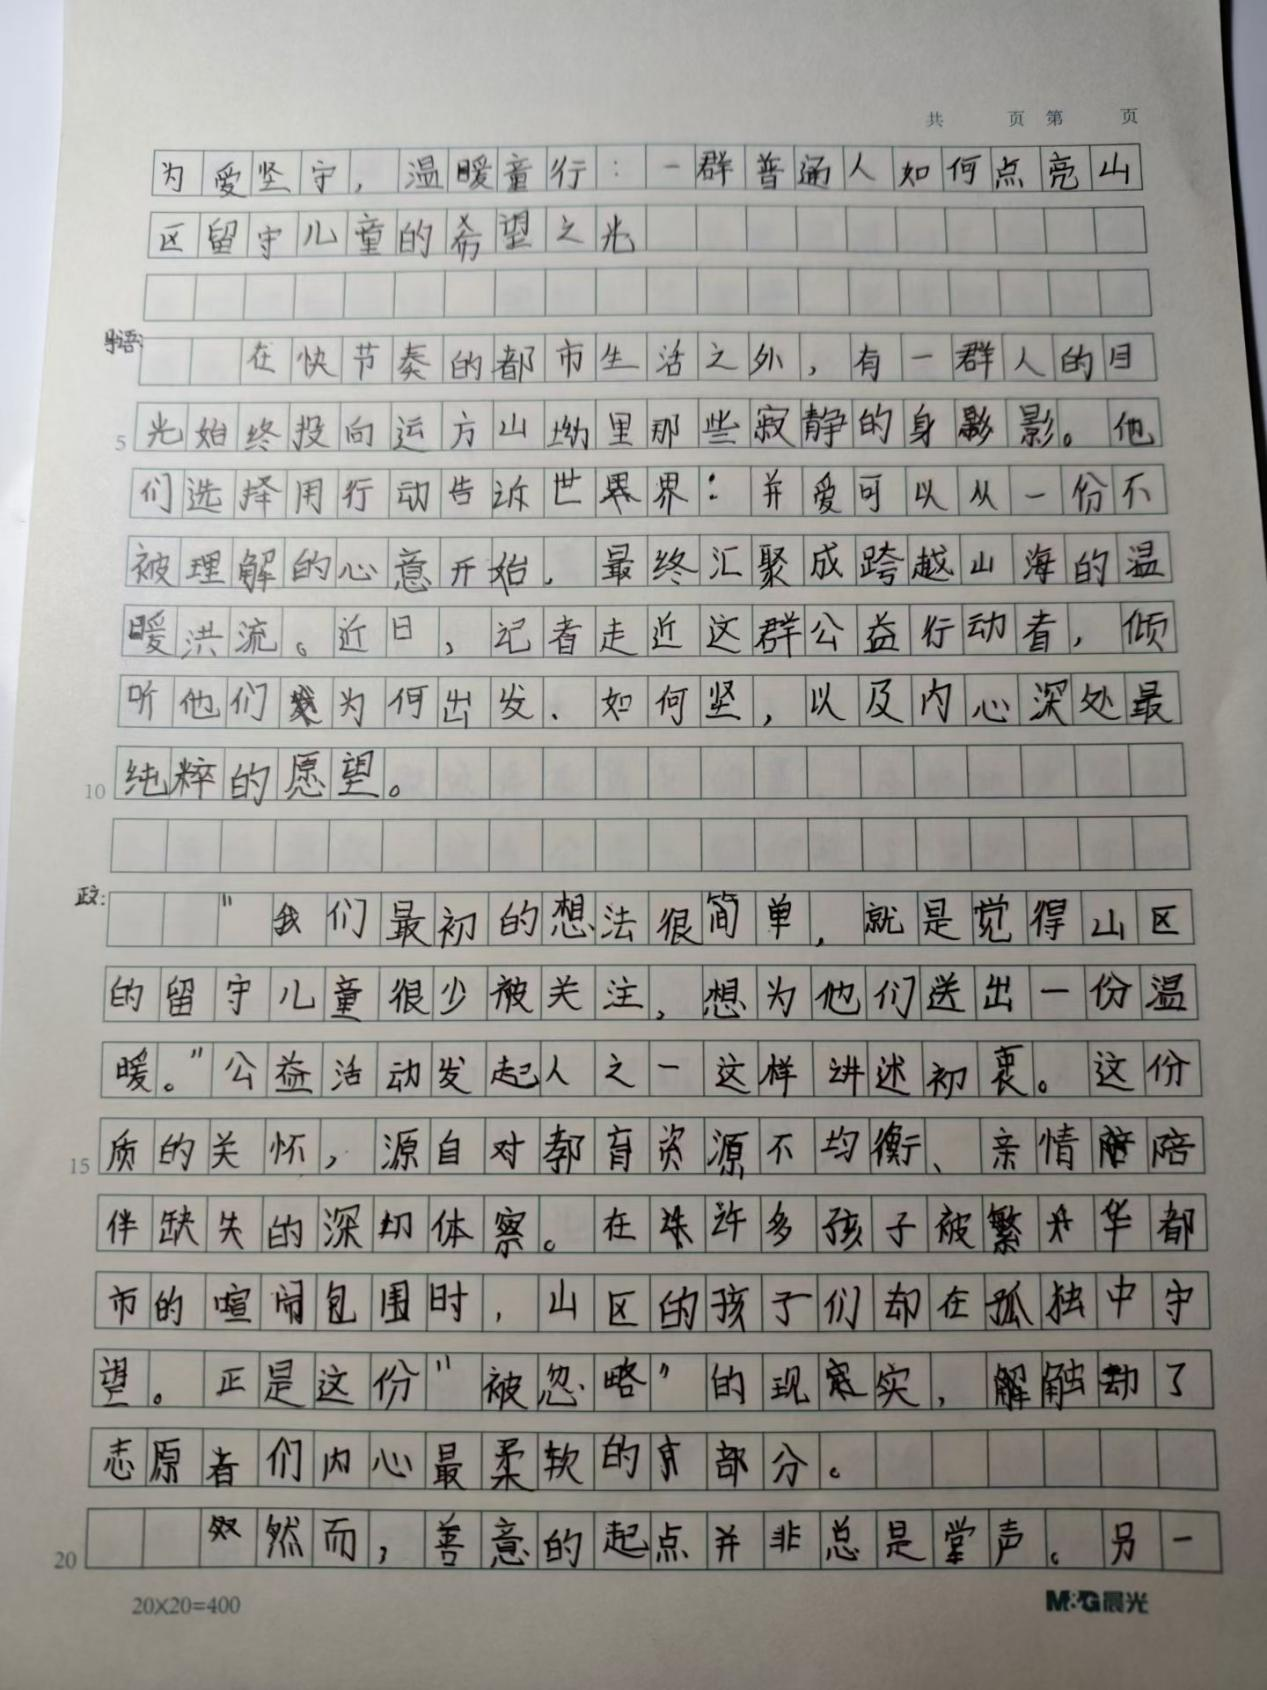 共 页 第 页
为爱坚守，温暖童行：一群普通人如何点亮山
区留守儿童的希望之光
导语：
在快节奏的都市生活之外，有一群人的目
5 光始终投向远方山坳里那些寂静的身影。他
们选择用行动告诉世界：并爱可以从一份不
被理解的心意开始，最终汇聚成跨越山海的温
暖洪流。近日，记者走近这群公益行动者，倾
听他们为何出发、如何坚，以及内心深处最
10 纯粹的愿望。
正文：
"我们最初的想法很简单，就是觉得山区
的留守儿童很少被关注，想为他们送出一份温
暖。"公益活动发起人之一这样讲述初衷。这份
15 质的关怀，源自对教育资源不均衡、亲情陪
伴缺失的深切体察。在许多孩子被繁华都
市的喧闹包围时，山区的孩子们却在孤独中守
望。正是这份"被忽略"的现实，触动了
志原者们内心最柔软的部分。
20 然而，善意的起点并非总是掌声。另一
20X20=400
M&G晨光